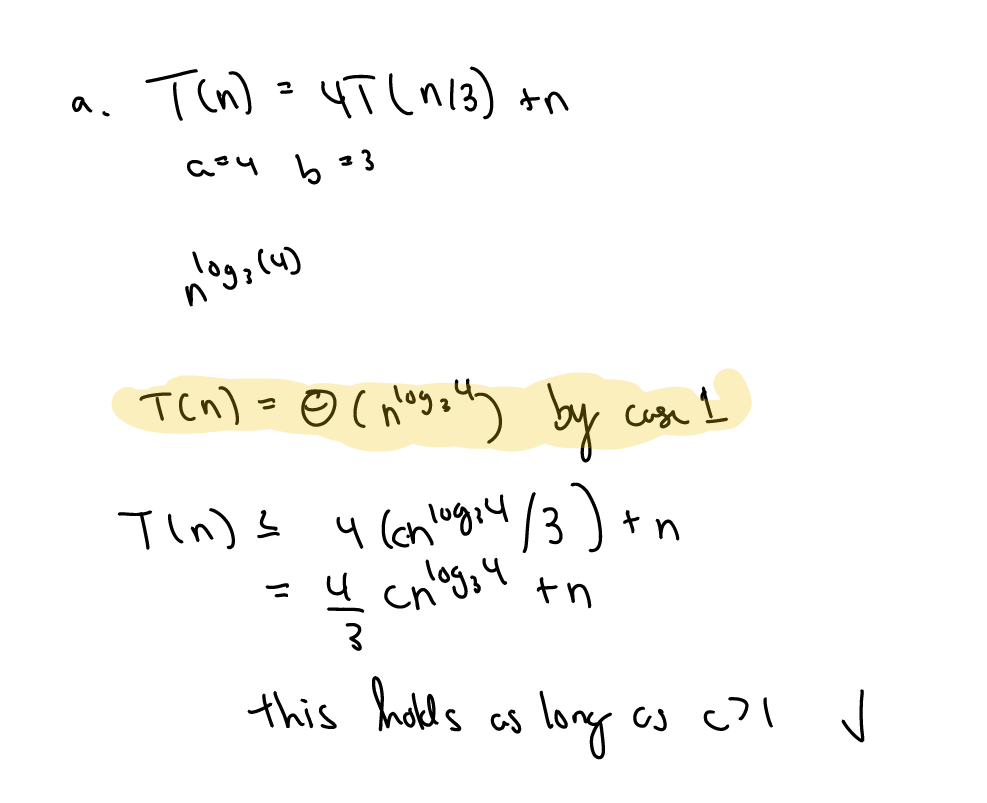 a. T(n) = 4T(n/3) + n
a=4 b=3
n^log₃(4)
T(n) = Θ(n^log₃4) by case 1
T(n) ≤ 4(cn^log₃4/3) + n
= 4/3 cn^log₃4 + n
this holds as long as c>1 ✓